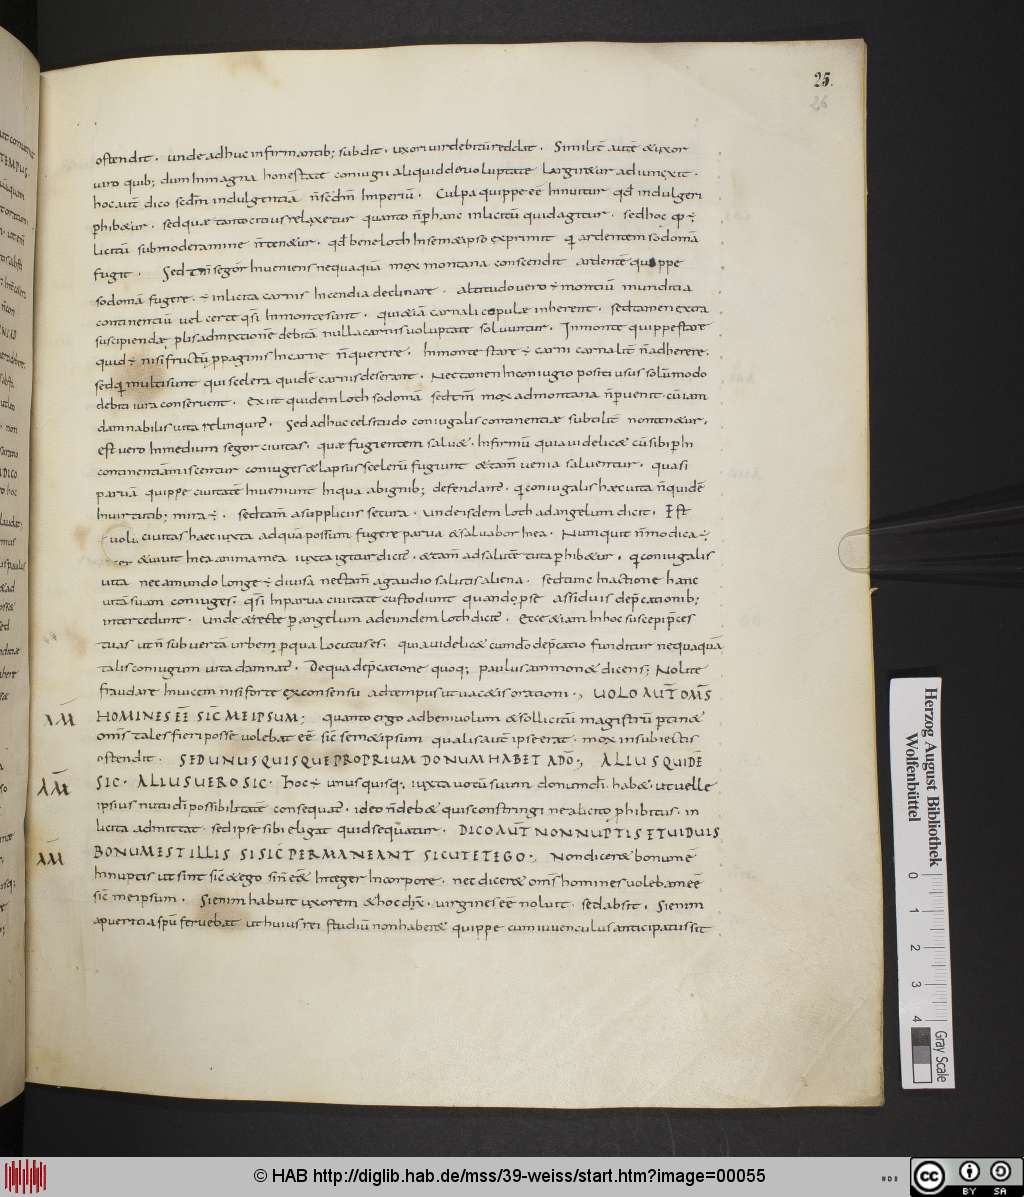 25.
26
ostendit. unde adhuc infirmantib; subdit. uxori vir debitū reddat. Similit̄ autē & uxor
viro quib; dum in magna honestate coniugii aliquid de voluptate largiretur adiunxit.
hoc autē dico scdm̄ indulgentiā n̄ scdm̄ Imperiū. Culpa quippe eē Innuitur qd̄ indulgeri
phib&ur. sed quae tanto citius relaxetur quanto n̄ p hanc inlicitū quid agitur. sed hoc
licitū sub moderamine n̄ ten&ur. qd̄ bene loth In sem&ipso exprimit qi ardentem sodomā
fugit. Sed tm̄ segor Inueniens nequaquā mox montana conscendit ardentē quippe
sodomā fugere. ÷ inlicita carnis Incendia declinare. altitudo vero ÷ montiū munditia
continentiū vel certe qsi In monte sunt. qui &iā carnali copulae inherent. sed tamen extra
suscipiendae plis admixtionē debitā nulla carnis voluptate solvuntur. In monte quippe stare
quid ÷ nisi fructū ppaginis In carne n̄ querere. In monte stare ÷ carni carnalit̄ n̄ adherere.
sed qi multi sunt qui scelera quidē carnis deserant. Nec tamen In coniugio positi usus solūmodo
debiti iura conservent. Exiit quidem loth sodomā sed tm̄ mox ad montana n̄ pvenit. cū iam
damnabilis vita relinquit̄. Sed adhuc celsitudo coniugalis continentiae subtilit̄ non ten&ur.
est vero In medium segor civitas. quae fugientem salv&. Infirmū quia videlic& cū sibi p In
continentiā miscentur coniuges & lapsus scelerū fugiunt & tam̄ venia salventur. quasi
parvā quippe civitatē Inveniunt In qua ab ignib; defendant̄. qi coniugalis haec vita n̄ quidē
In virtutib; mira ÷. sed tam̄ a suppliciis secura. unde isdem loth ad angelum dicit. Est
civitas haec iuxta ad quā possum fugere parva & salvabor In ea. Numquit n̄ modica ÷
& vivit In ea anima mea iuxta igitur dicit̄. & tam̄ ad salutē tuta phib&ur. qi coniugalis
vita nec a mundo longe ÷ divisa nec tam̄ a gaudio salutis aliena. sed tunc In actione hanc
vitā suam coniuges. qsi In parva civitate custodiunt quando p se assiduis depcationib;
intercedunt. unde & recte p angelum ad eundem loth dicit̄. Ecce &iam In hoc suscepi pces
tuas ut n̄ subvertā urbem p qua locutus es. quia videlic& cum do depcatio funditur nequaquā
talis coniugum vita damnat̄. De qua depcatione quoq; paulus ammon& dicens; Nolite
fraudare Invicem nisi forte ex consensu ad tempus ut vac&is orationi; UOLO AUT̄ OM̄S
AM̄ HOMINES EĒ SIC̄ ME IPSUM; quanto ergo ad benivolum & sollicitū magistrū ptin&
om̄s tales fieri posse volebat eē sic̄ sem&ipsum qualis autē ipse erat. mox in subiectis
ostendit. SED UNUSQUISQUE PROPRIUM DONUM HABET A DŌ; ALIUS QUIDĒ
AM̄ SIC. ALIUS UERO SIC. Hoc ÷ unusquisq; iuxta votū suum donum di. habe&. ut velle
ipsius nutu di possibilitatē consequat̄. ideo n̄ deb& quis constringi ne a licito phibitus. in
licita admittat. sed ipse sibi eligat quid sequatur. DICO AUT̄ NON NUPTIS ET UIDUIS
AM̄ BONUM EST ILLIS SI SIC̄ PERMANEANT SICUT ET EGO; Non dicer& bonum ē
In nuptis ut sint sic̄ & ego sin̄ e& Integer In corpore. nec dicer& om̄s homines volebam eē
sic̄ me ipsum. Si enim habuit uxorem & hoc dix̄. virgines eē noluit. sed absit. Si enim
a pueritia spū fervebat ut huius rei studiū non haber& quippe cum iuvenculus anticipatus sit
Herzog August Bibliothek
Wolfenbüttel
0 1 2 3 4
Gray Scale
© HAB http://diglib.hab.de/mss/39-weiss/start.htm?image=00055
CC BY SA